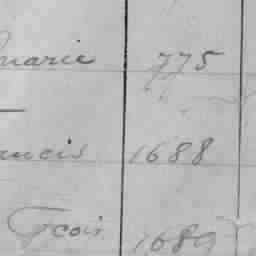 marie 775
ancis 1688
Fcois 1689